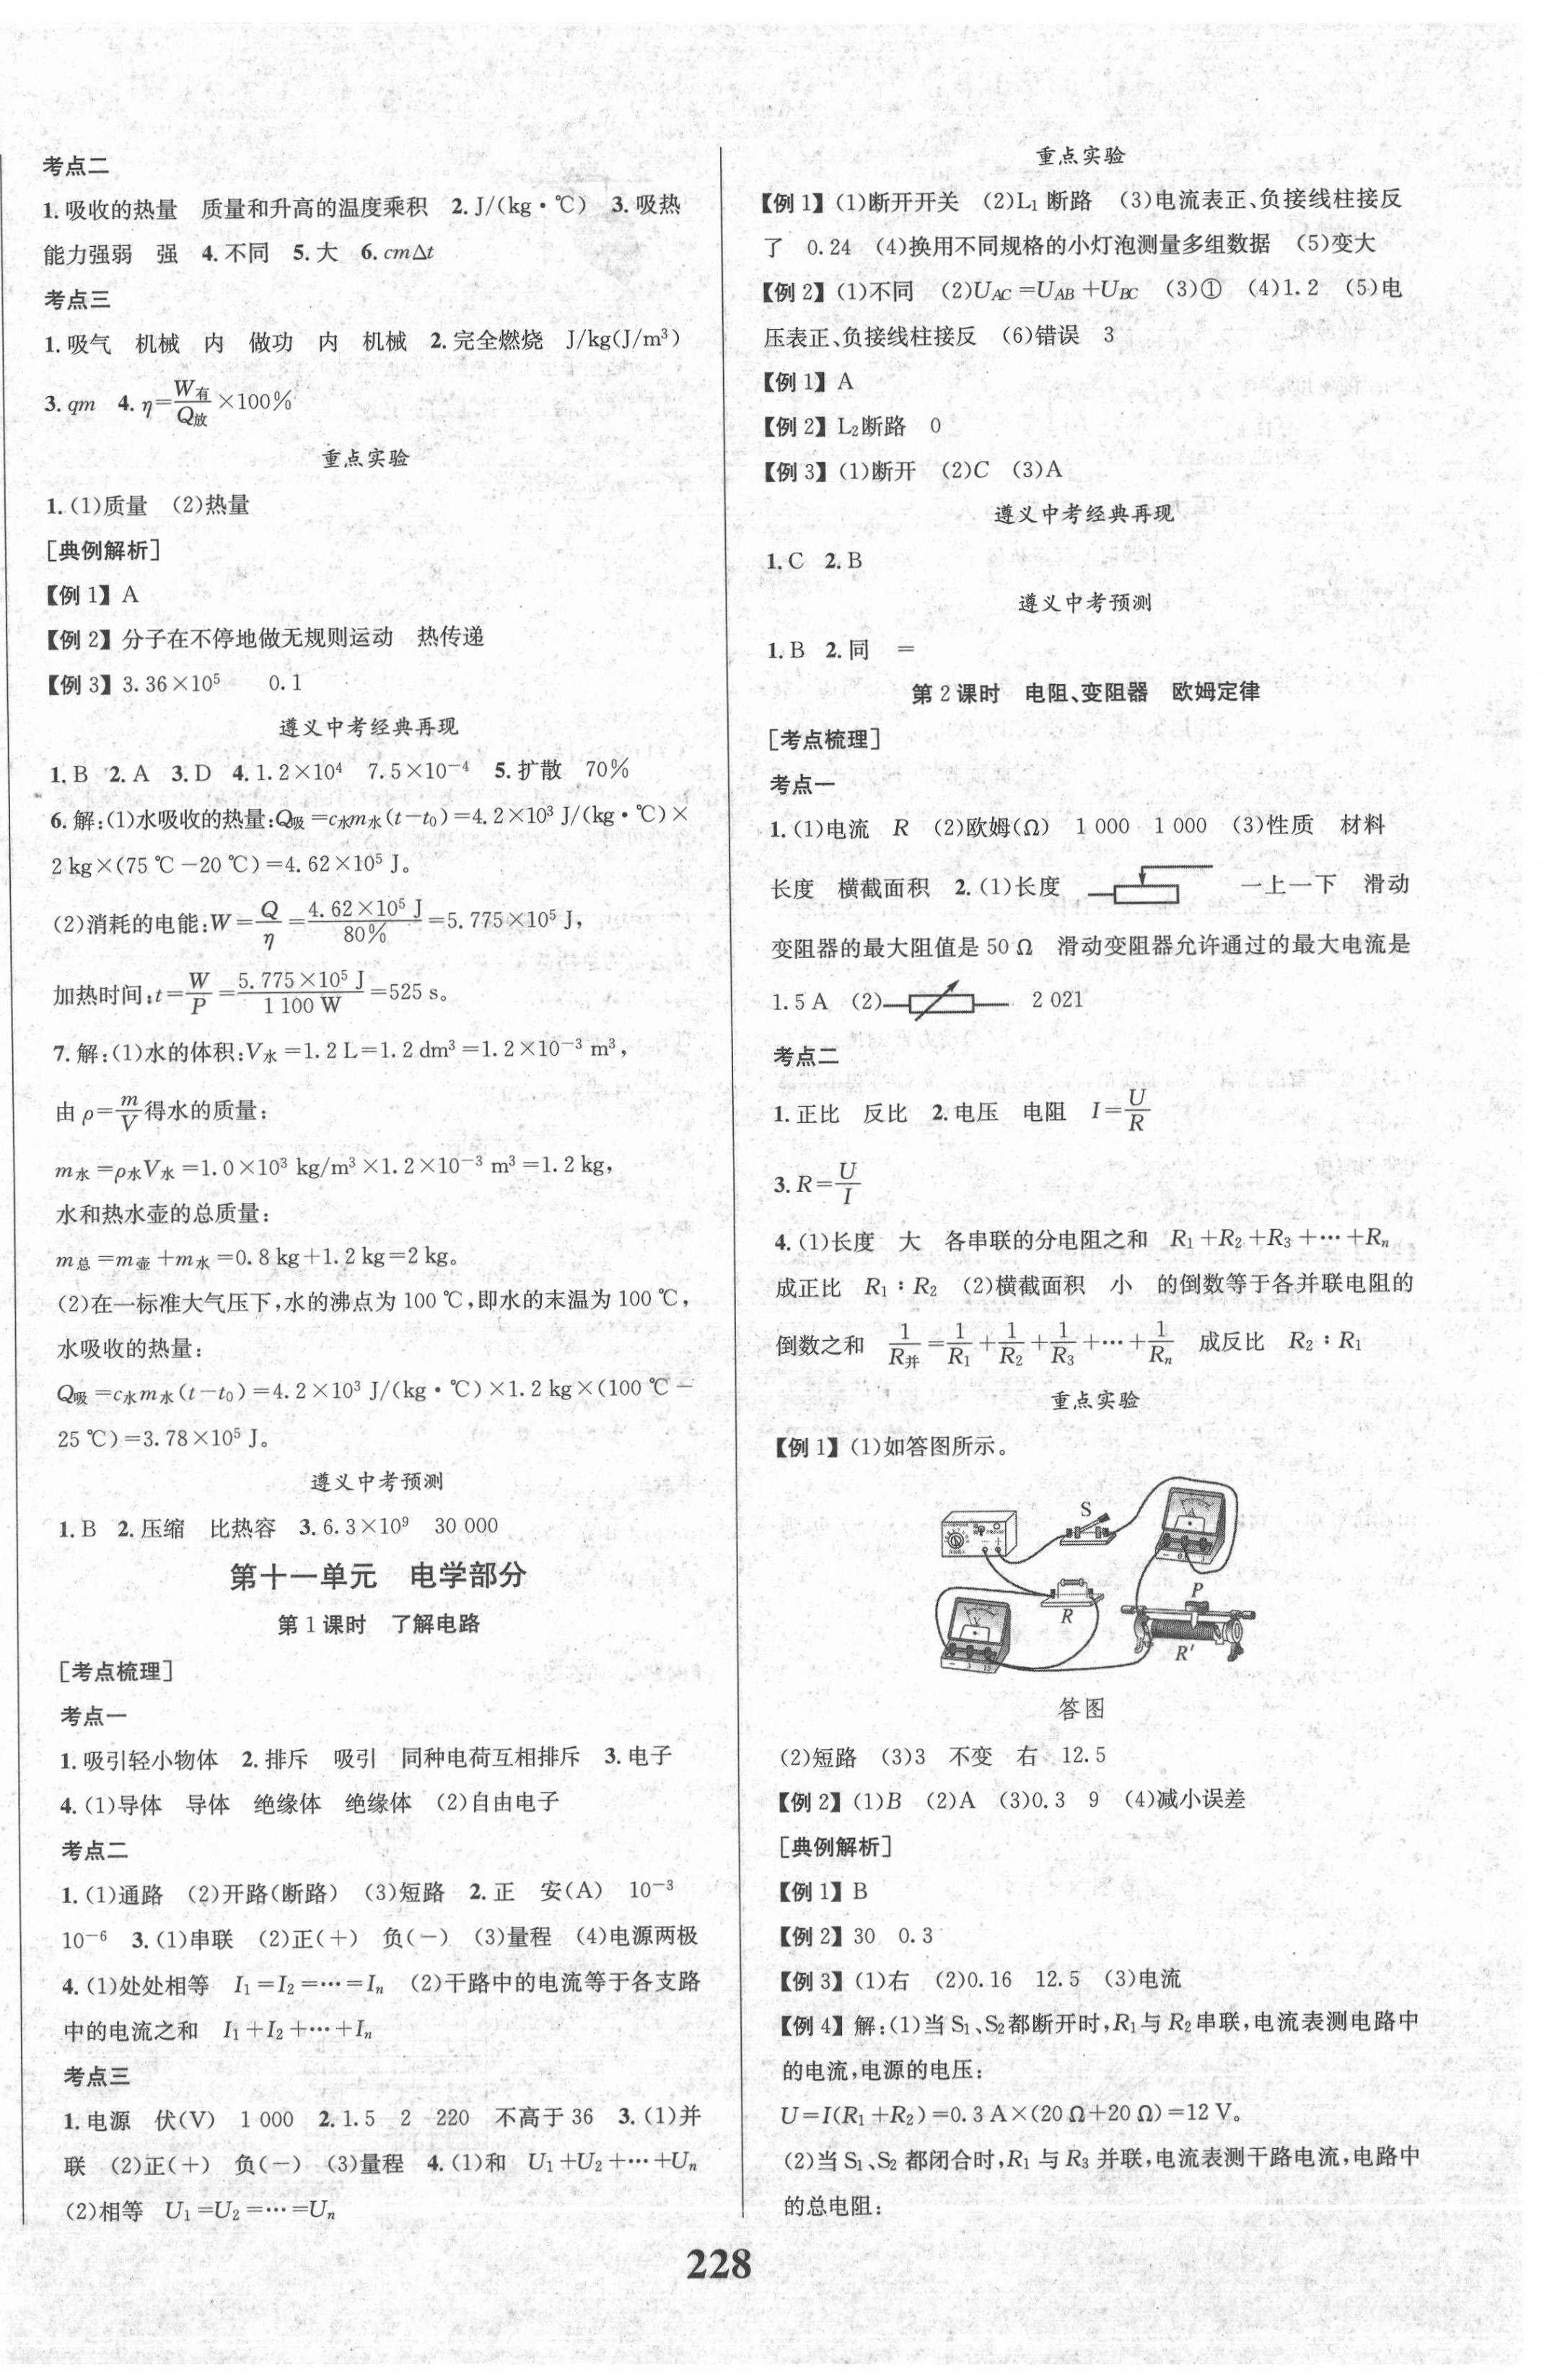 考点二
1.吸收的热量 质量和升高的温度乘积 2.J/(kg·℃) 3.吸热
能力强弱 强 4.不同 5.大 6.cmΔt
考点三
1.吸气 机械 内 做功 内 机械 2.完全燃烧 J/kg(J/m³)
3.qm 4.η=W有/Q放×100%
重点实验
1.(1)质量 (2)热量
[典例解析]
【例1】A
【例2】分子在不停地做无规则运动 热传递
【例3】3.36×10⁵ 0.1
遵义中考经典再现
1.B 2.A 3.D 4.1.2×10⁴ 7.5×10⁻⁴ 5.扩散 70%
6.解:(1)水吸收的热量:Q吸=c水m水(t-t₀)=4.2×10³ J/(kg·℃)×
2 kg×(75 ℃-20 ℃)=4.62×10⁵ J。
(2)消耗的电能:W=Q/η=4.62×10⁵ J/80%=5.775×10⁵ J,
加热时间:t=W/P=5.775×10⁵ J/1 100 W=525 s。
7.解:(1)水的体积:V水=1.2 L=1.2 dm³=1.2×10⁻³ m³,
由ρ=m/V得水的质量:
m水=ρ水V水=1.0×10³ kg/m³×1.2×10⁻³ m³=1.2 kg,
水和热水壶的总质量:
m总=m壶+m水=0.8 kg+1.2 kg=2 kg。
(2)在一标准大气压下,水的沸点为100 ℃,即水的末温为100 ℃,
水吸收的热量:
Q吸=c水m水(t-t₀)=4.2×10³ J/(kg·℃)×1.2 kg×(100 ℃-
25 ℃)=3.78×10⁵ J。
遵义中考预测
1.B 2.压缩 比热容 3.6.3×10⁹ 30 000
第十一单元 电学部分
第1课时 了解电路
[考点梳理]
考点一
1.吸引轻小物体 2.排斥 吸引 同种电荷互相排斥 3.电子
4.(1)导体 导体 绝缘体 绝缘体 (2)自由电子
考点二
1.(1)通路 (2)开路(断路) (3)短路 2.正 安(A) 10⁻³
10⁻⁶ 3.(1)串联 (2)正(+) 负(-) (3)量程 (4)电源两极
4.(1)处处相等 I₁=I₂=⋯=Iₙ (2)干路中的电流等于各支路
中的电流之和 I₁+I₂+⋯+Iₙ
考点三
1.电源 伏(V) 1 000 2.1.5 2 220 不高于36 3.(1)并
联 (2)正(+) 负(-) (3)量程 4.(1)和 U₁+U₂+⋯+Uₙ
(2)相等 U₁=U₂=⋯=Uₙ
重点实验
【例1】(1)断开开关 (2)L₁断路 (3)电流表正、负接线柱接反
了 0.24 (4)换用不同规格的小灯泡测量多组数据 (5)变大
【例2】(1)不同 (2)U_AC=U_AB+U_BC (3)① (4)1.2 (5)电
压表正、负接线柱接反 (6)错误 3
【例1】A
【例2】L₂断路 0
【例3】(1)断开 (2)C (3)A
遵义中考经典再现
1.C 2.B
遵义中考预测
1.B 2.同 =
第2课时 电阻、变阻器 欧姆定律
[考点梳理]
考点一
1.(1)电流 R (2)欧姆(Ω) 1 000 1 000 (3)性质 材料
长度 横截面积 2.(1)长度 一上一下 滑动
变阻器的最大阻值是50 Ω 滑动变阻器允许通过的最大电流是
1.5 A (2) 2 021
考点二
1.正比 反比 2.电压 电阻 I=U/R
3.R=U/I
4.(1)长度 大 各串联的分电阻之和 R₁+R₂+R₃+⋯+Rₙ
成正比 R₁∶R₂ (2)横截面积 小 的倒数等于各并联电阻的
倒数之和 1/R并=1/R₁+1/R₂+1/R₃+⋯+1/Rₙ 成反比 R₂∶R₁
重点实验
【例1】(1)如答图所示。
S
A
P
R
V
R′
答图
(2)短路 (3)3 不变 右 12.5
【例2】(1)B (2)A (3)0.3 9 (4)减小误差
[典例解析]
【例1】B
【例2】30 0.3
【例3】(1)右 (2)0.16 12.5 (3)电流
【例4】解:(1)当S₁、S₂都断开时,R₁与R₂串联,电流表测电路中
的电流,电源的电压:
U=I(R₁+R₂)=0.3 A×(20 Ω+20 Ω)=12 V。
(2)当S₁、S₂都闭合时,R₁与R₃并联,电流表测干路电流,电路中
的总电阻:
228